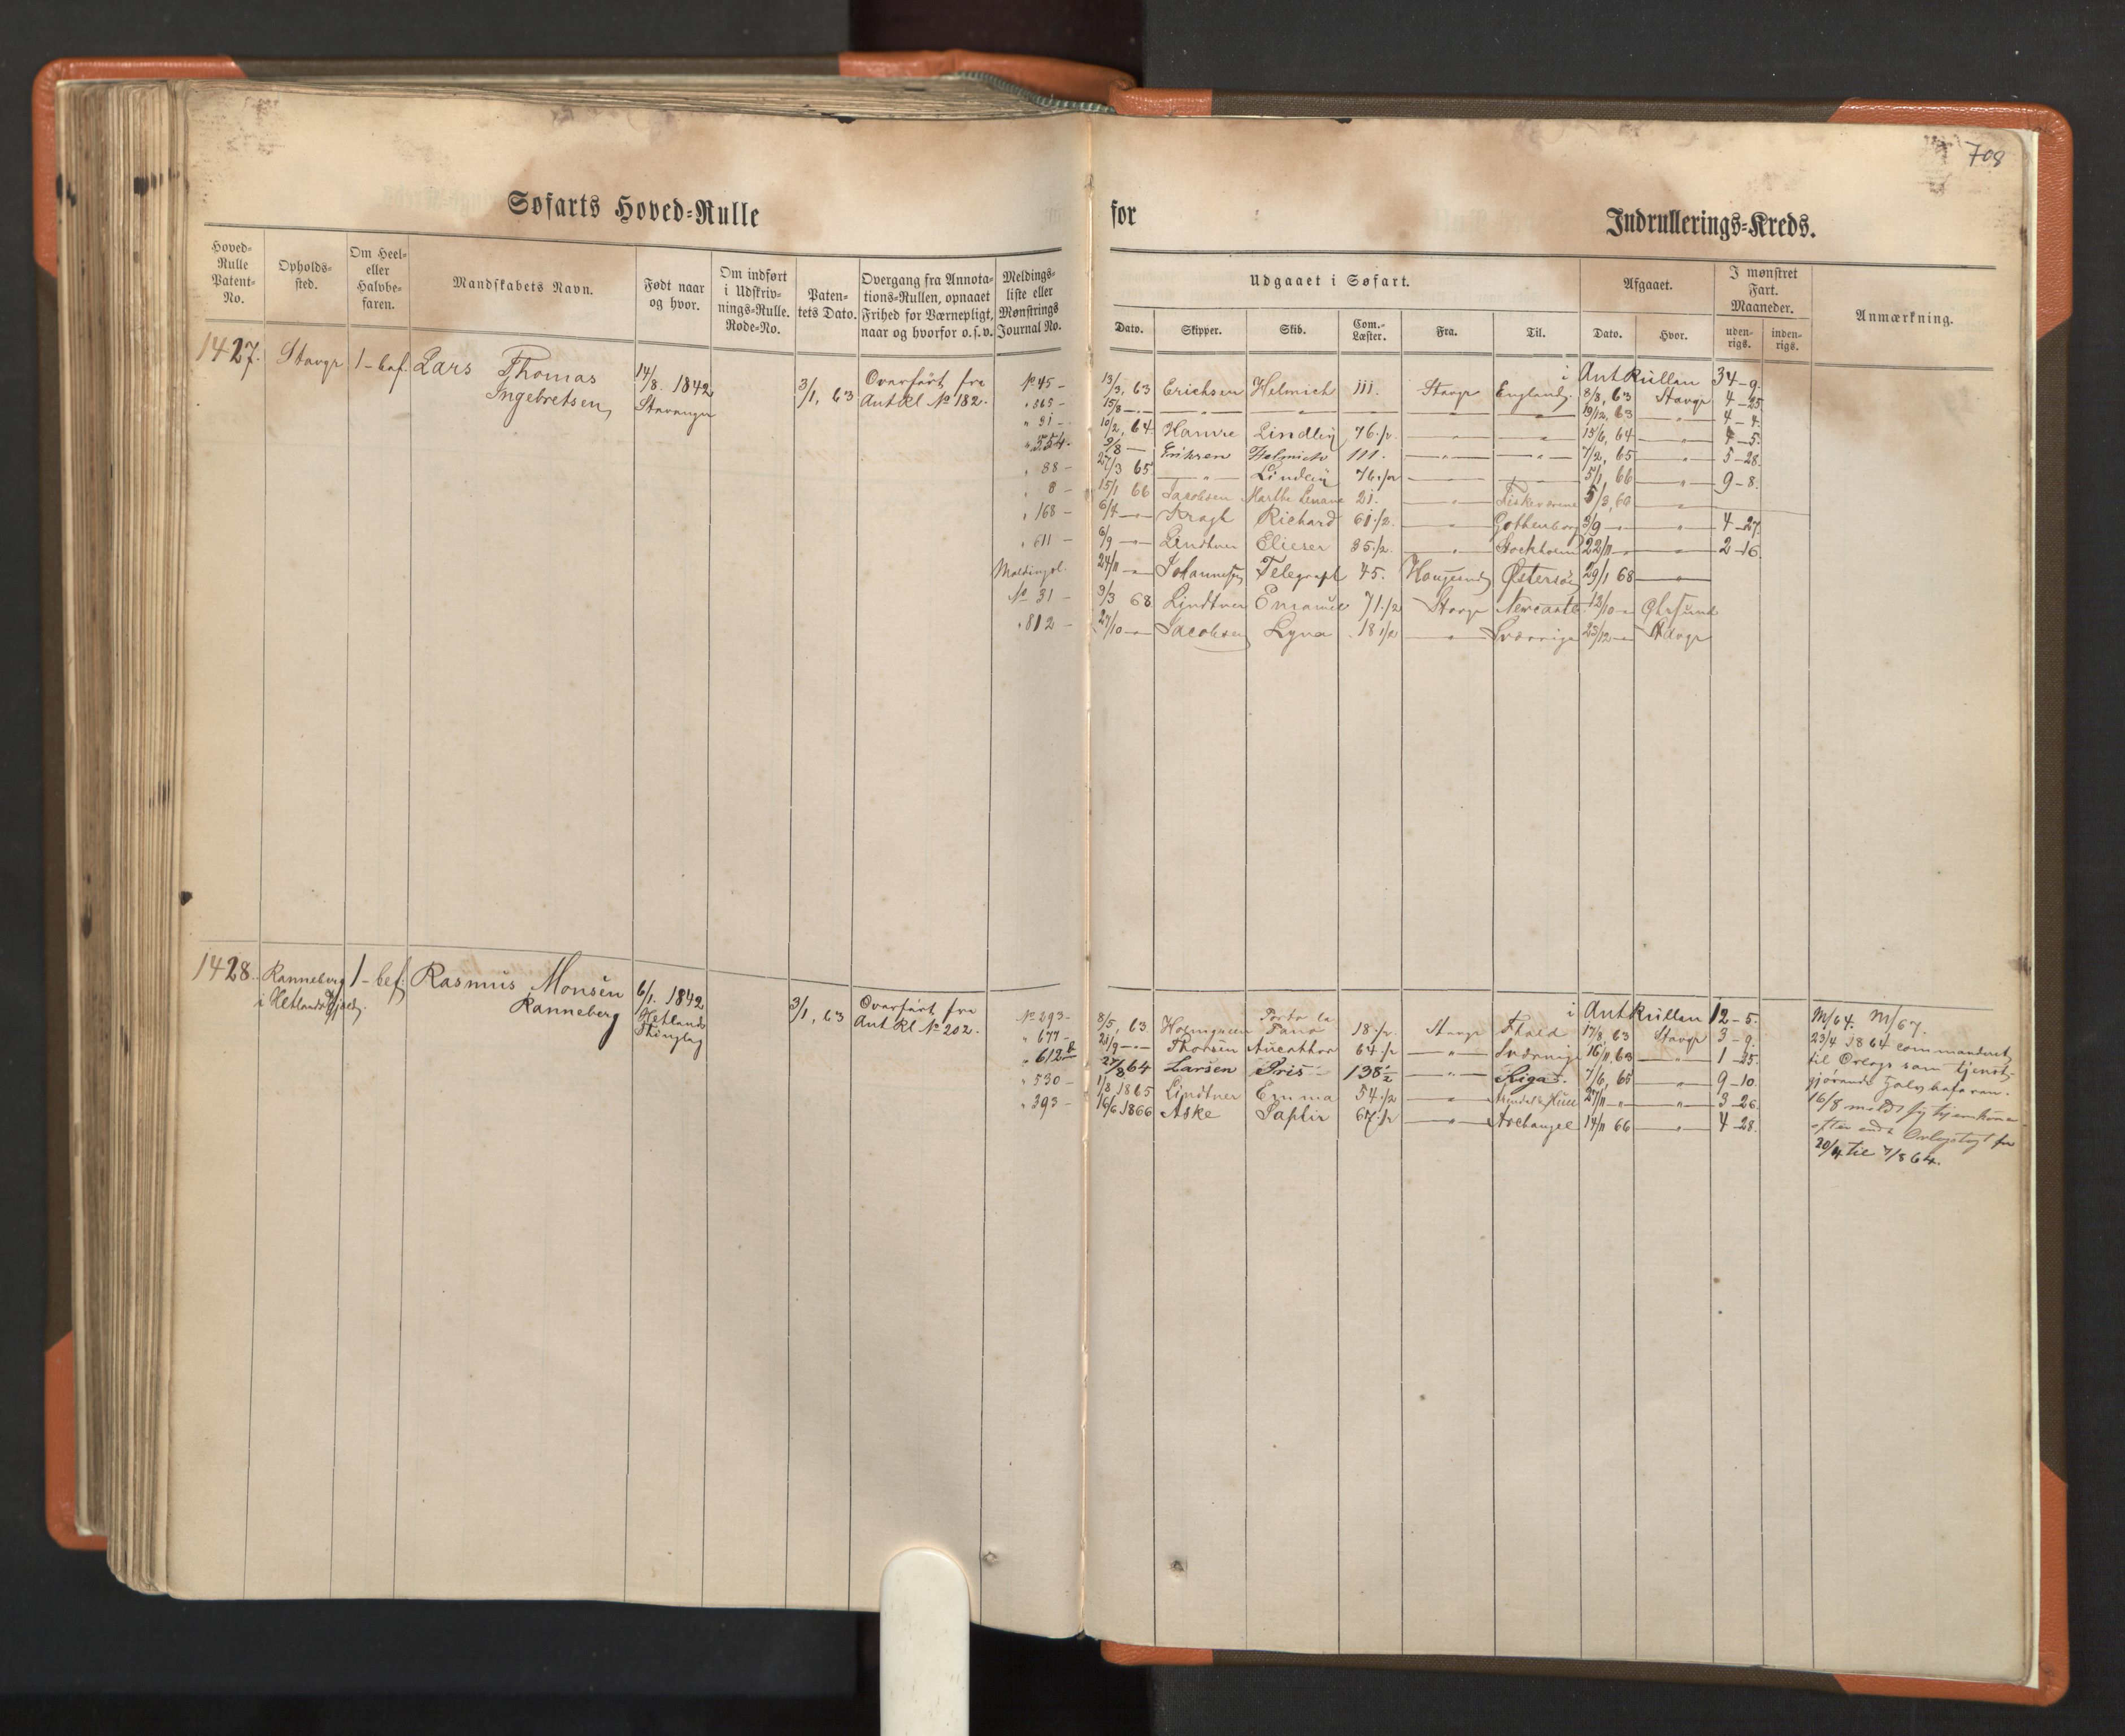 708
Søfarts Hoved-Rulle for Indrullerings-Kreds.
Hoved-Rulle Patent-No. Opholds-sted. Om Heel- eller Halvbe-faren. Mandskabets Navn. Født naar og hvor. Om indført i Udskriv-nings-Rulle. Rode-No. Paten-tets Dato. Overgang fra Annota-tions-Rullen, opnaaet Frihed for Værnepligt, naar og hvorfor o.s.v. Meldings-liste eller Mønstrings Journal No.
Udgaaet i Søfart. Afgaaet. I mønstret Fart. Maaneder. Anmærkning.
Dato. Skipper. Skib. Com.-Læster. Fra. Til. Dato. Hvor. uden-rigs. inden-rigs.
1427. Stavgr 1-bef. Lars Thomas Ingebretsen, 14/8. 1842 Stavanger 3/1, 63 Overført fra Ant Rl № 182.
i AntRullen 34-9.
№ 45- 13/3, 63 Erichsen Helmich 111. Stavgr England. 8/8, 63 Stavgr 4-25
" 365- 15/8 -"- -"- -"- -"- -"- 19/12, 63 -"- 4-4.
" 31- 10/2, 64 Hamre Lindley 76.1/2. -"- -"- 15/6, 64 -"- 4-5.
" 554. 9/8 - Eriksen Helmich 111. -"- -"- 7/2, 65 " 5-28.
" 88- 27/3 65 -"- Lindley 76.1/2 -"- - 5/1, 66 " 9-8.
" 8- 15/1 66 Jacobsen Marthe Lenane 21. " Fiskeriene 5/3, 66
" 168- 6/4 -"- Kragh Richard 61.1/2. -"- Gothenborg 3/9 -"- -"- 4-27.
" 611- 6/9 -"- Lindtner Elieser 35.1/2. -"- Stockholm 22/11 -"- -"- 2-16.
Meldingsl. 24/11 -"- Johannesen Telegraph 45. Haugesund Østersøen 29/1 68 -"-
№ 31- 3/3 68 Lindtner Emanuel 71.1/2 Stavgr Newcastle 12/10 -"-
" 812- 27/10 -"- Jacobsen Lyna 18 1/2 -"- Sverrige 23/12 -"- Stavgr
1428. Ranneberg i Hetlands Gjeld. 1-bef. Rasmus Monsen Ranneberg 6/1. 1842 Hetlands Thinglag 3/1, 63 Overført fra Ant Rl № 202.
i AntRullen 12-5.
№ 293- 8/5, 63. 18.1/2. Stavgr 17/8, 63 Stavgr 3-9.
" 677- 21/9 -"- Thorsen 64.1/2 -"- Sverrige 16/11, 63 -"- 1-25.
" 612 27/8 64 Larsen Pris 138 1/2 -"- Riga. 7/6, 65 " 9-10.
" 530- 1/8 1865 Lindtner Emma 54.1/2 -"- Arendal & Hull 27/11 -"- -"- 3-26.
" 393- 16/6 1866 Aske Saphir 67.1/2 -"- Archangel 14/11 66 -"- 4-28.
M/64. M/67.
23/4 1864 commanderet
til Orlogs som tjenst-
gjørende Halvbefaren.
16/8 meldt sig hjemkom-
efter endt Orlogstogt fra
20/4 til 7/8 64.